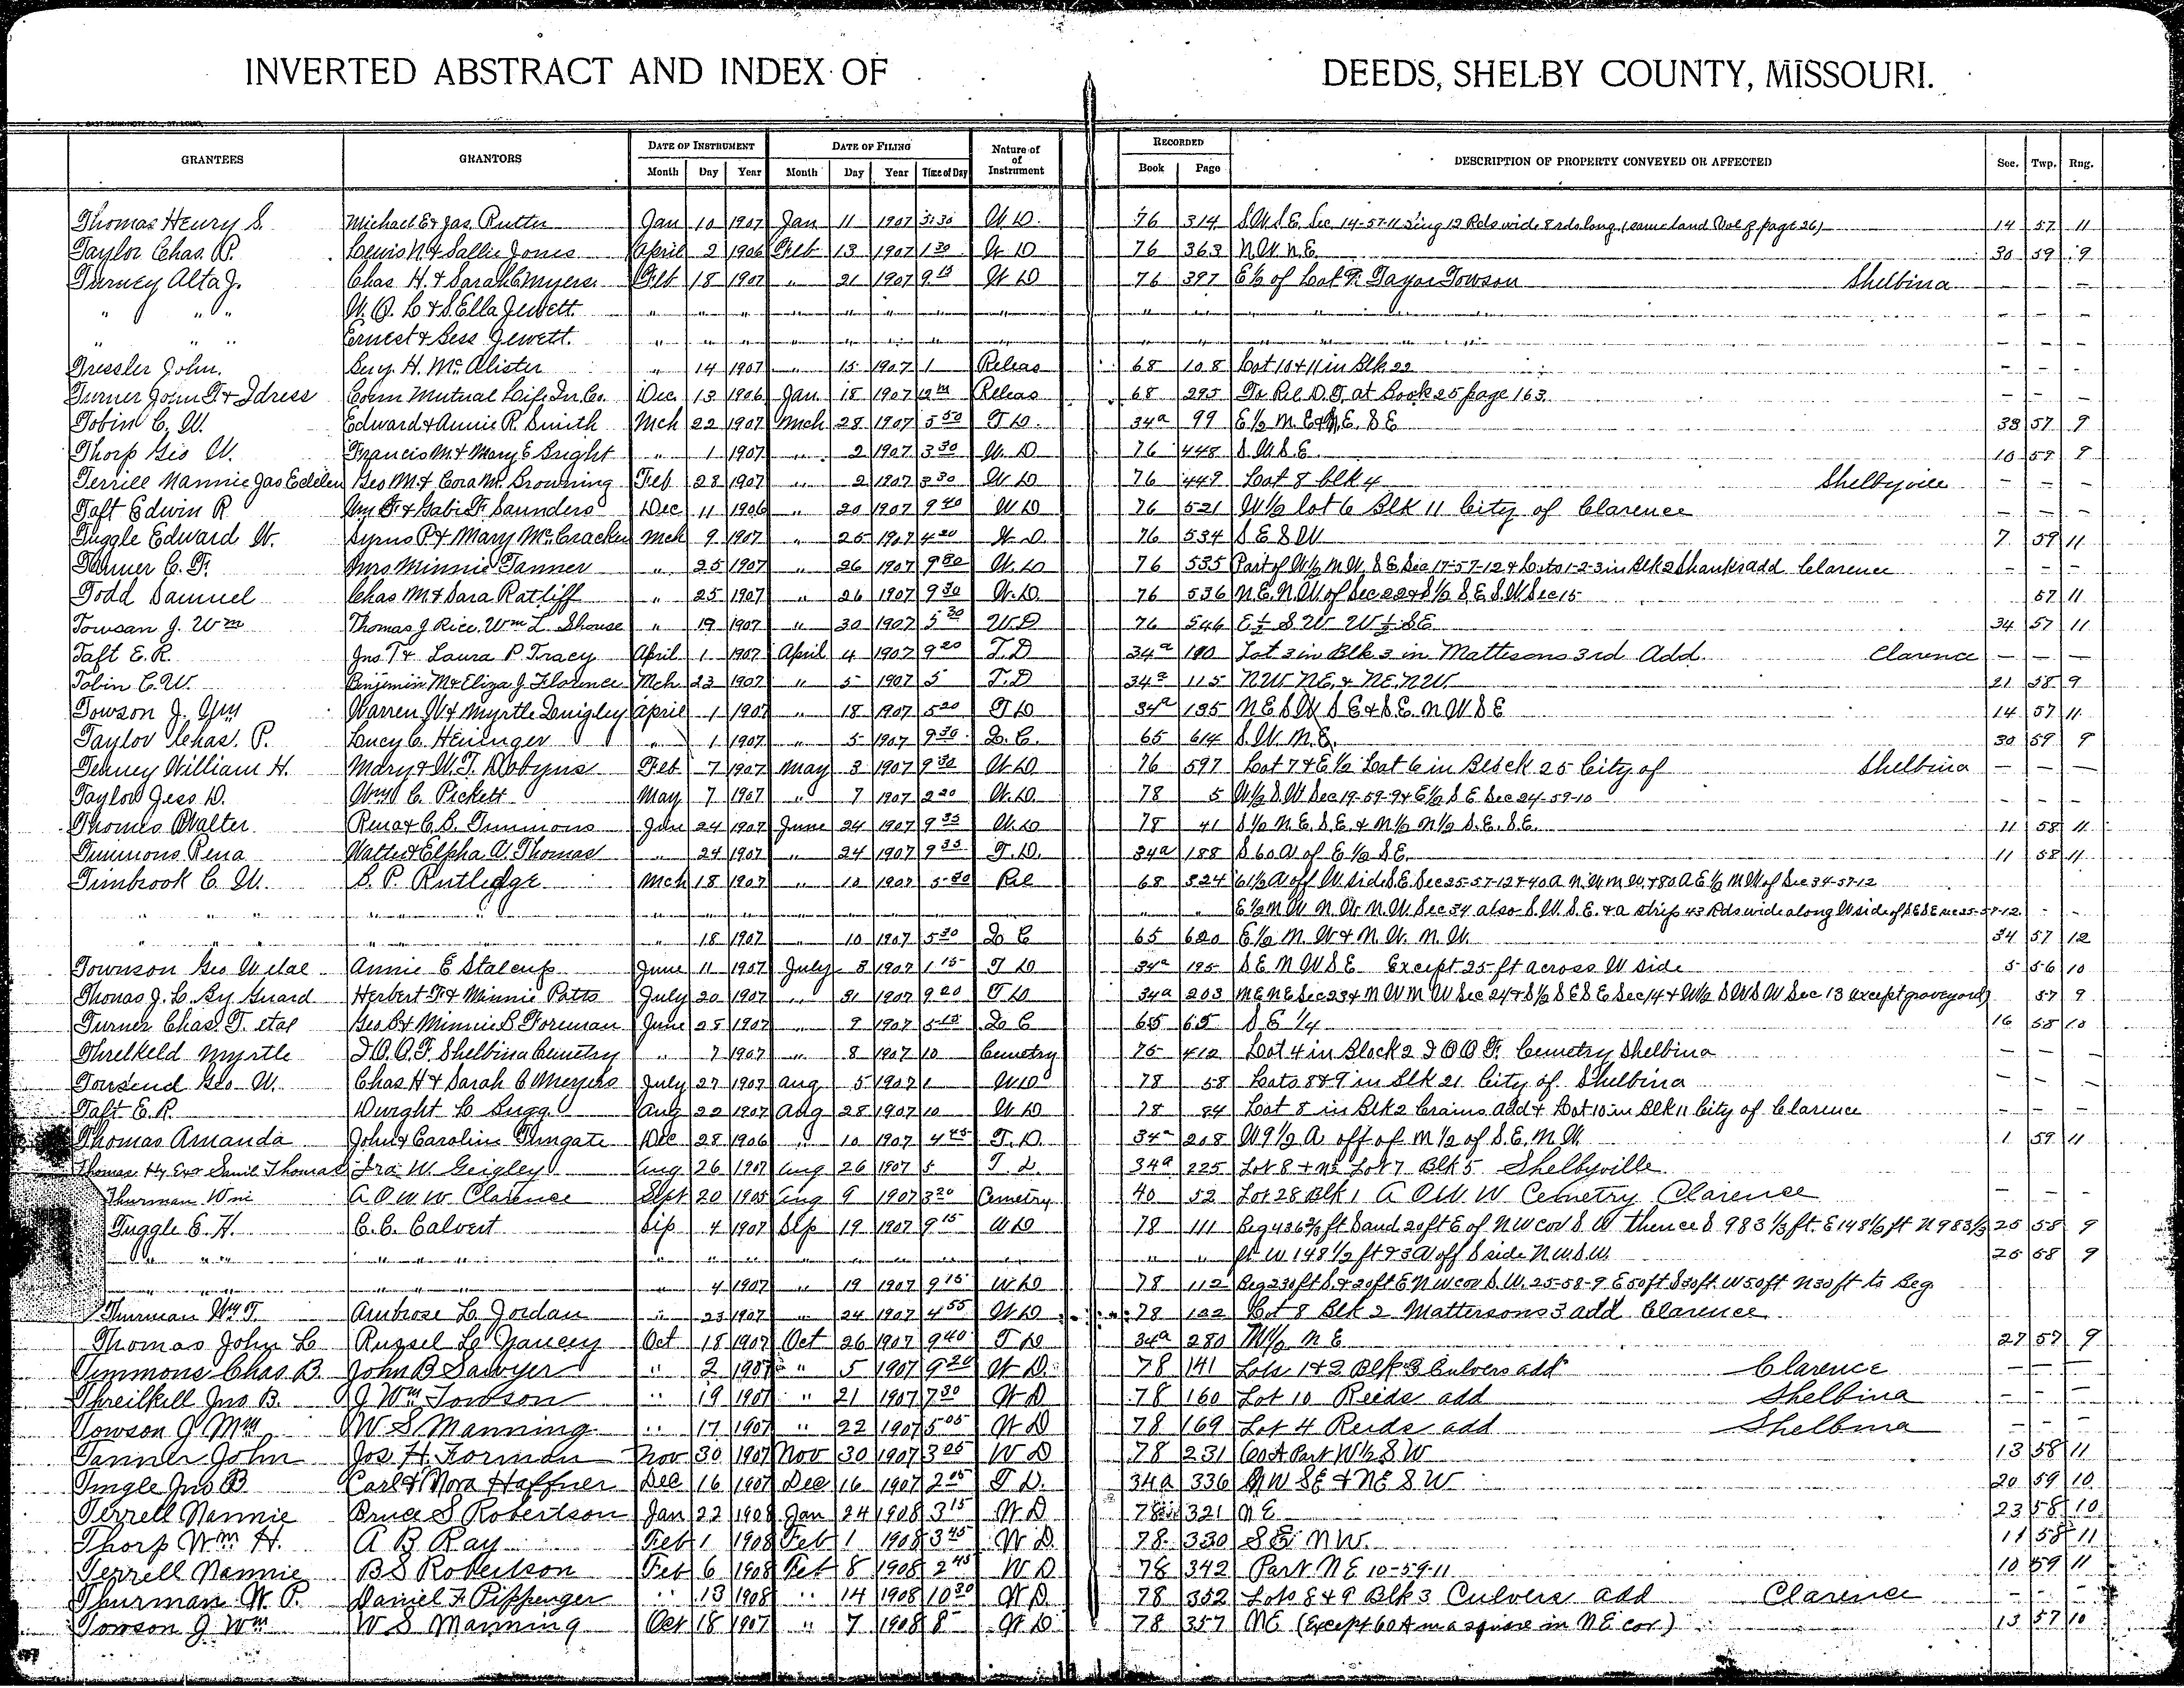 INVERTED ABSTRACT AND INDEX OF DEEDS, SHELBY COUNTY, MISSOURI.
GRANTEES GRANTORS DATE OF INSTRUMENT Month Day Year DATE OF FILING Month Day Year Time of Day Nature of Instrument RECORDED Book Page DESCRIPTION OF PROPERTY CONVEYED OR AFFECTED Sec. Twp. Rng.
Thomas Henry S. Michael E & Jas. Rutter Jan 10 1907 Jan 11 1907 3:30 W D. 76 314 S.W S E Sec 14-57-11 12 Rds wide 8 rds long (same land Vol page 26) 14 57 11
Taylor Chas. P. Lewis N. & Sallie Jones April 2 1906 Feb 13 1907 1 30 W D 76 363 N W N E 30 59 9
Turney Alta J. Chas H. & Sarah C Myers Feb 18 1907 " 21 1907 9 15 W D 76 397 E ½ of Lot Towson Shelbina — — —
" " " W. O. L & S. Ella Jewett " " " " " " " " " " " — — —
" " " Ernest & Bess Jewett. " " " " " " " " " " " — — —
Tressler John. Benj. H. McAlister " 14 1907 " 15 1907 1 Releas 68 108 Lot 10 & 11 in Blk 22 — — —
Turner John T & Idress Conn Mutual Life In. Co. Dec 13 1906 Jan 18 1907 Releas 68 295 To Rel D. T. at Book 25 page 163. — — —
Tobin C. W. Edward & Annie R. Smith Mch 22 1907 Mch 28 1907 5 50 T D. 34a 99 E ½ N. E & N. E. S E 33 57 9
Thorp Geo W. Francis M. & Mary E Bright " 1 1907 " 2 1907 3 30 W. D 76 448 S. W S E 10 59 9
Terrill Nannie Jas Edelen Geo M. & Cora M. Browning Feb 28 1907 " 2 1907 3 30 W D 76 449 Lot 8 blk 4 Shelbyville — — —
Taft Edwin R Wm F. & Gabi F. Saunders Dec 11 1906 " 20 1907 9 40 W D 76 521 W ½ lot 6 Blk 11 City of Clarence — — —
Tuggle Edward W. Syrus P & Mary McCracken Mch 9 1907 " 25 1907 4 20 W D. 76 534 S E S W 7 59 11
Tanner C. F. Mrs Minnie Tanner " 25 1907 " 26 1907 9 30 W. D 76 535 Part of W ½ N W, S E Sec 17-57-12 & Lots 1-2-3 in Blk 2 Shanks add Clarence — — —
Todd Samuel Chas M & Sara Ratliff " 25 1907 " 26 1907 9 30 W. D. 76 536 N. E. N. W. of Sec 22 & S ½ S. E. S. W Sec 15 57 11
Towsan J. Wm Thomas J Rice, Wm L. Shouse " 19 1907 " 30 1907 5 30 W. D 76 546 E ½ S W W ½ S E 34 57 11
Taft E. R. Jno T & Laura P Tracy April 1 1907 April 4 1907 9 20 T. D 34a 100 Lot 3 in Blk 3 in Mattisons 3rd Add Clarence — — —
Tobin C. W. Benjimin M & Eliza J Florence Mch 23 1907 " 5 1907 5 T. D 34a 115 NW NE, & NE. NW 21 58 9
Towson J. Wm Warren W & Myrtle Quigley April 1 1907 " 18 1907 5 20 T D 34a 135 N E S W S E & S E. N W S E 14 57 11
Taylor Chas. P. Lucy C. Heninger " 1 1907 " 5 1907 9 30 Q. C. 65 614 S. W. N. E. 30 59 9
Tenney William H. Mary & W. T. Dobyns Feb 7 1907 May 3 1907 9 30 W D 76 597 Lot 7 & E ½ Lot 6 in Block 25 City of Shelbina — — —
Taylor Jess D. Wm C. Pickett May 7 1907 " 7 1907 2 20 W. D. 78 5 W ½ S W Sec 19-59-9 & E ½ S E Sec 24-59-10 — — —
Thomas Walter Rena & C. B. Timmons June 24 1907 June 24 1907 9 35 W. D 78 41 S ½ N. E. S. E. & N ½ N ½ S. E. S. E. 11 58 11
Timmons Rena Walter & Elpha A. Thomas " 24 1907 " 24 1907 9 35 T. D. 34a 188 S 60 A of E ½ S E. 11 58 11
Timbrook C. W. B. P. Rutledge Mch 18 1907 " 10 1907 5 30 Rel 68 324 61 ½ A off W side S. E. Sec 25-57-12 & 40 A N. W N W. & 80 A E ½ N W of Sec 34-57-12
" " " " " " E ½ N W N. W. N. W. Sec 34 also S. W. S. E. & a strip 43 Rds wide along W side of S E S E Sec 25-57-12.
" " " " 18 1907 " 10 1907 5 30 Q C 65 620 E ½ N. W & N. W. N. W. 34 57 12
Townson Geo W etal Annie E Stalcup June 11 1907 July 3 1907 1 15 T D 34a 195 S E N W S E Except 25 ft across W side 5 56 10
Thomas J. C. By Guard Herbert F. & Minnie Potts July 20 1907 " 31 1907 9 20 T D 34a 203 N E N E Sec 23 & N W N W Sec 24 & S ½ S E S E Sec 14 & W ½ S W S W Sec 13 except graveyard 57 9
Turner Chas. T. etal Geo B & Minnie B Foreman June 25 1907 " 9 1907 5 15 Q C 65 65 S E ¼ 16 58 10
Threlkeld Myrtle I. O. O. F. Shelbina Cemetry " 7 1907 " 8 1907 10 Cemetry 75 412 Lot 4 in Block 2 I O O F. Cemetry Shelbina — — —
Towsend Geo. W. Chas H & Sarah C Meyers July 27 1907 Aug 5 1907 1 W D 78 58 Lots 8 & 9 in Blk 21 City of Shelbina — — —
Taft E. R. Dwight L Bugg Aug 22 1907 Aug 28 1907 10 W. D 78 84 Lot 8 in Blk 2 Crains add & Lot 10 in Blk 11 City of Clarence — — —
Thomas Amanda John & Caroline Dec 28 1906 " 10 1907 4 45 T. D. 34a 208 W 9 ½ A off of N ½ of S. E. N. W. 1 59 11
Thomas Hy Exr Saml Thomas Ira W. Geigley Aug 26 1907 Aug 26 1907 5 T. D. 34a 225 Lot 8 + N ½ Lot 7 Blk 5 Shelbyville
Thurman Wm A O U W Clarence Sept 20 1905 Aug 9 1907 3 20 Cemetry 40 52 Lot 28 Blk 1 A O U. W Cemetry Clarence — — —
Tuggle E. H. C. C. Calvert Sep 4 1907 Sep 19 1907 9 15 W D 78 111 Beg 436 ⅔ ft S and 20 ft E of N W cor S. W thence S 983 ⅓ ft. E 148 ½ ft N 983 ⅓ 25 58 9
" " " " " " " " " " " " " ft W 148 ½ ft & 3 A off S side N W S. W. 26 58 9
" " " " 4 1907 " 19 1907 9 15 W D 78 112 Beg 230 ft S. & 20 ft E N W cor S. W. 25-58-9 E 50 ft S 30 ft. W 50 ft N 30 ft to Beg
Thurman Wm T. Ambrose L. Jordan " 23 1907 " 24 1907 4 55 W D 78 122 Lot 8 Blk 2 Mattersons 3 add Clarence
Thomas John C Russel L Yancey Oct 18 1907 Oct 26 1907 9 40 T D 34a 280 W ½ N E 27 57 9
Timmons Chas B John B Sawyer " 2 1907 " 5 1907 9 20 W D. 78 141 Lots 1 & 2 Blk 3 Culvers add Clarence — — —
Threilkill Jno B. J Wm Towson " 19 1907 " 21 1907 7 30 W D 78 160 Lot 10 Reids add Shelbina — — —
Towson J Wm W S Manning " 17 1907 " 22 1907 5 05 W D 78 169 Lot 4 Reids add Shelbina — — —
Tanner John Jos. H. Forman Nov 30 1907 Nov 30 1907 3 05 W D 78 231 60 A Part W ½ S W 13 58 11
Tingle Jno B Carl & Nora Haffner Dec 16 1907 Dec 16 1907 2 05 T D. 34a 336 N W SE & NE S W 20 59 10
Terrell Nannie Bruce S Robertson Jan 22 1908 Jan 24 1908 3 15 W D 78 321 N E 23 58 10
Thorp Wm H. A B Ray Feb 1 1908 Feb 1 1908 3 45 W D 78 330 S E N W. 11 58 11
Terrell Nannie B S Robertson Feb 6 1908 Feb 8 1908 2 45 W D 78 342 Part N E 10-59-11 10 59 11
Thurman W. P. Daniel F Pippenger " 13 1908 " 14 1908 10 30 W D 78 352 Lots 8 & 9 Blk 3 Culvers add Clarence — — —
Towson J Wm W S Manning Oct 18 1907 " 7 1908 8 W D 78 357 NE (Except 60 A in a square in N E cor) 13 57 10